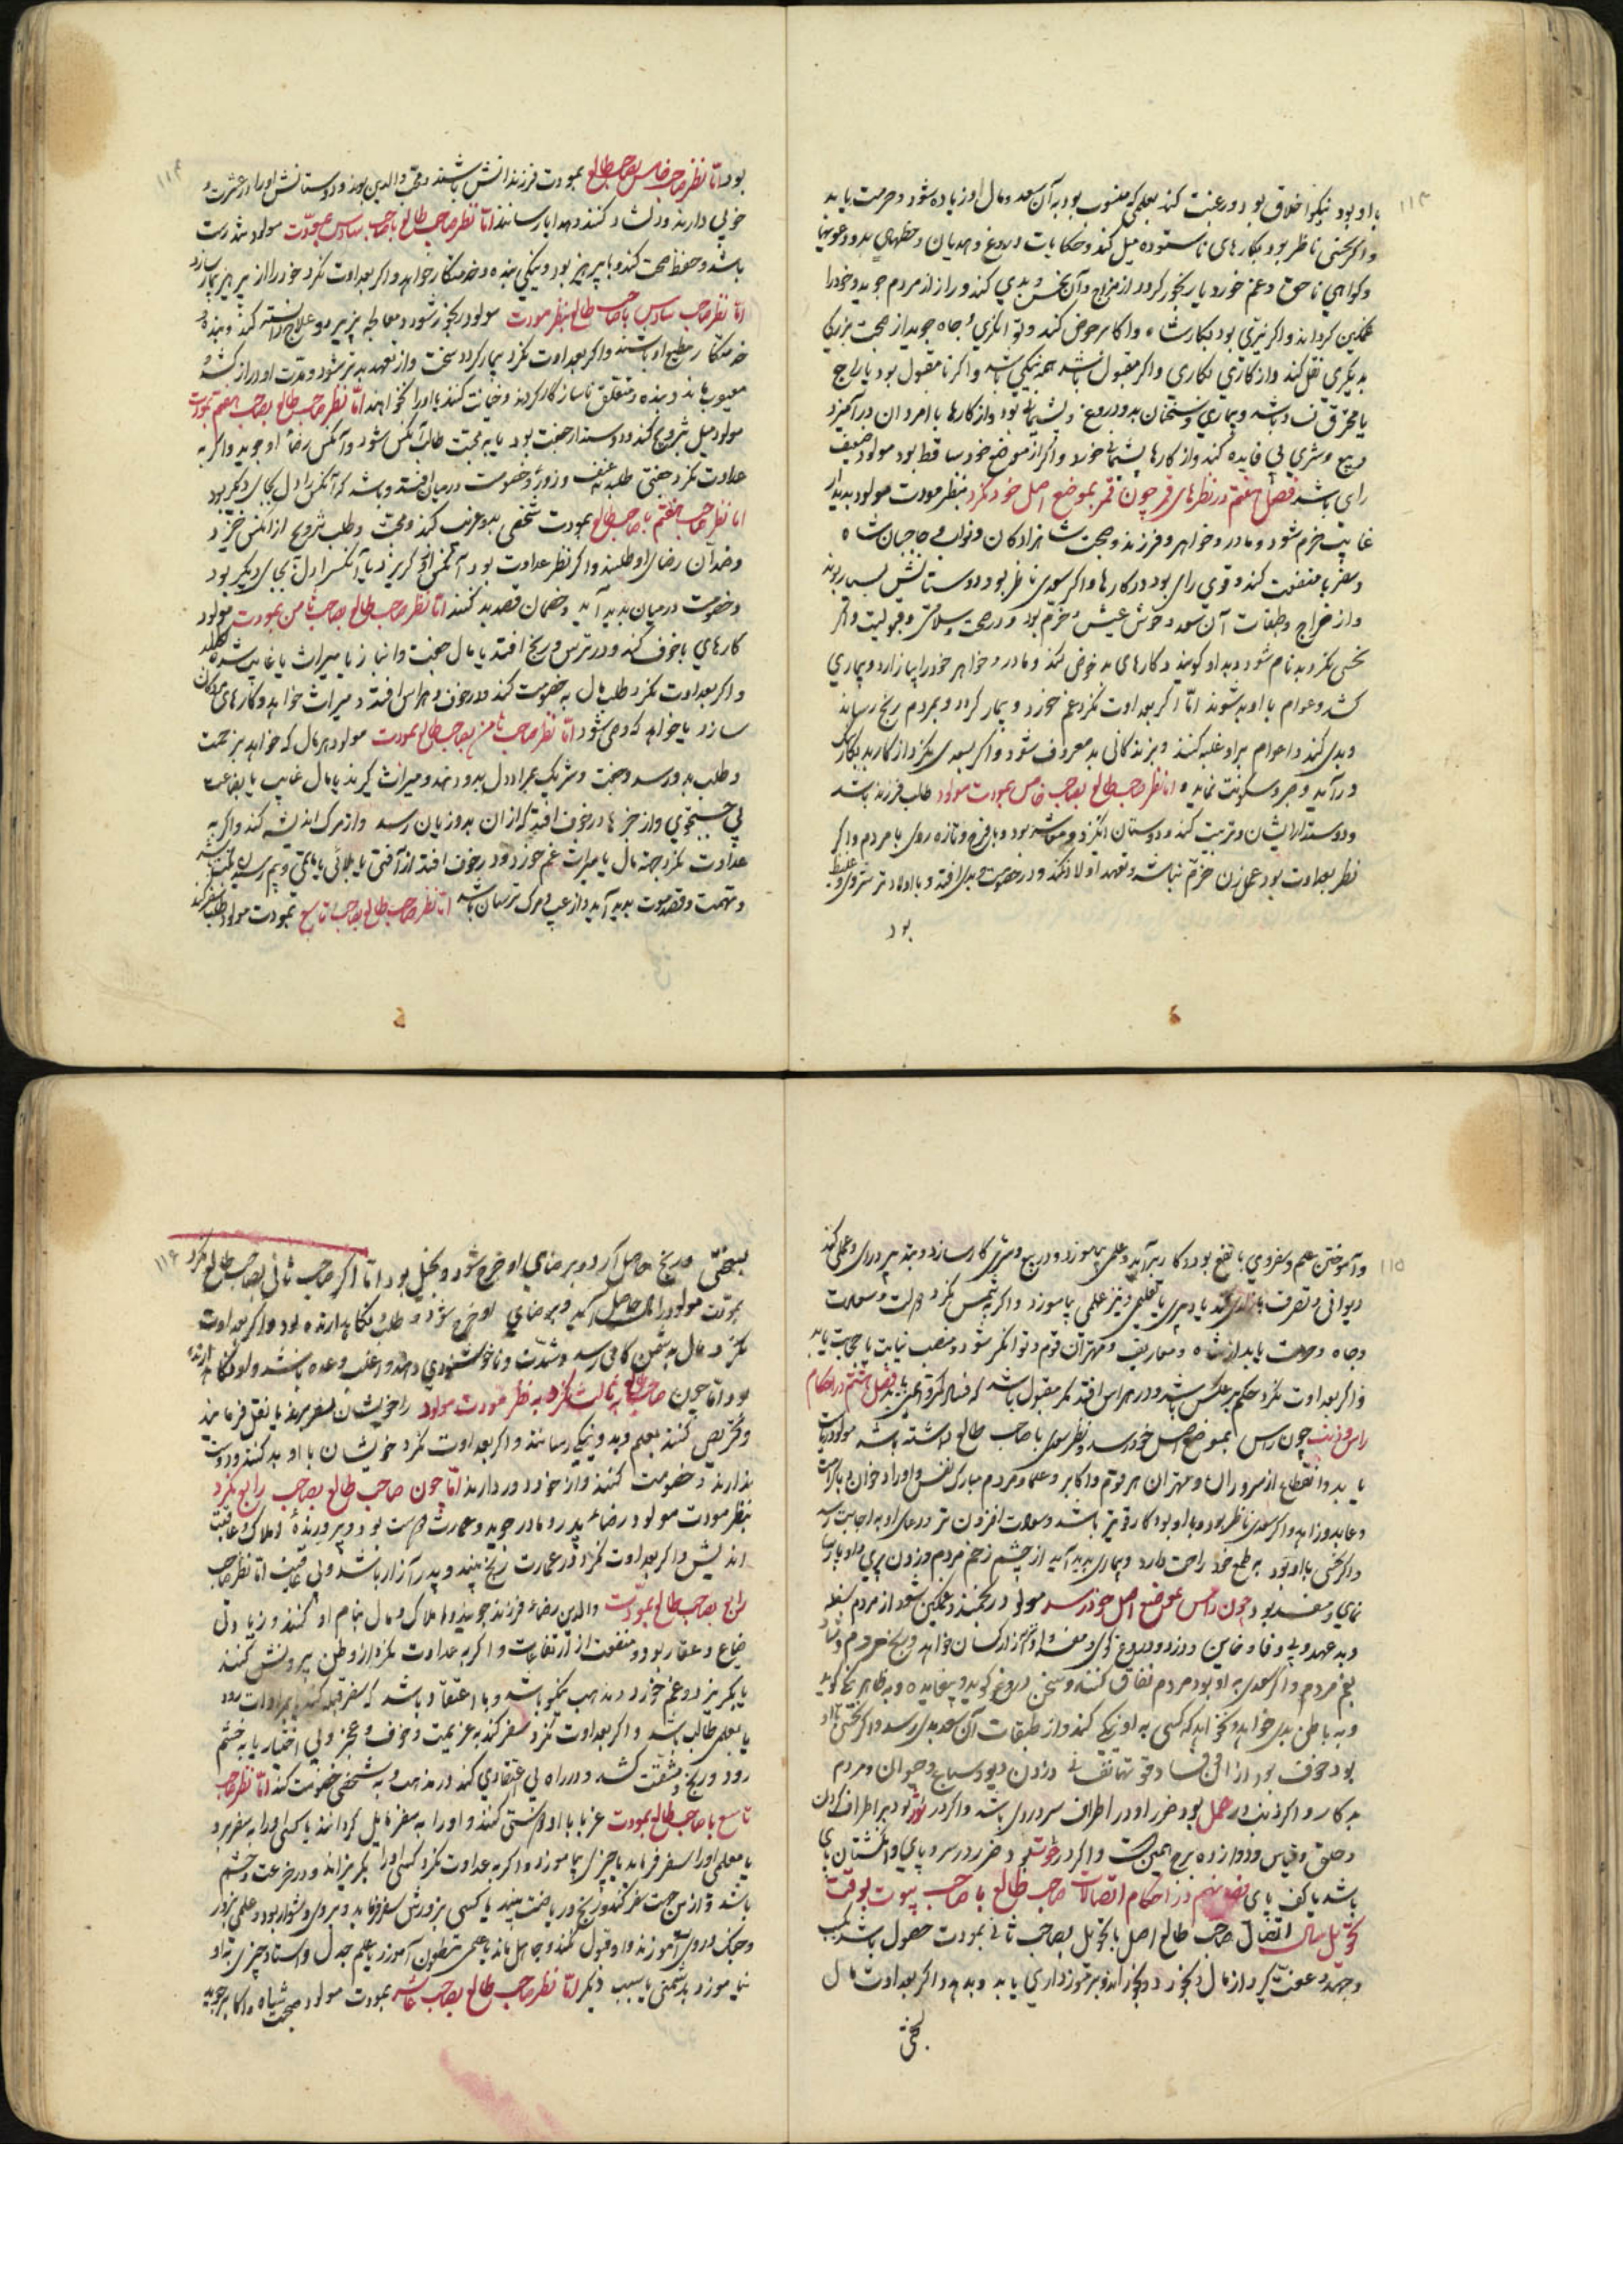 با او بود نیکو اخلاق بود و رغبت کند بعلمی که منسوب بود به آن سعد و مال او زیاده شود و حرمت یابد
واکر نحسی ناظر بود بکارهای ناستوده میل کند و حکایات دروغ و هذیان و خطهای بد و دعویها
وکواهی ناحق و غم خورد یا رنجور کردد از مزاج آن نحس و بدی کند و راز از مردم جوید و خود را
غمکین کرداند واکر نیری بود بکار شاه و اکابر خوض کند و توانکری و جاه جوید از صحبت بزرکی
بدیکری نقل کند و از کاری بکاری واکر مقبول باشد همه نیکی باشد واکر نامقبول بود یا راجع
یا محترق فساد باشد و بیماری و سخنان بد و دروغ و پشیمانی بود و از کارها با مردان درآمیزد
و بیع و شری بی فایده کند و از کارها پشیمانی خورد واکر از موضع خود ساقط بود مولود ضعیف
رای باشد فصل هفتم در نظرهای قمر چون قمر بموضع اصل خود نکرد بنظر مودت مولود بدیدار
غایب خرم شود و مادر و خواهر و فرزند و صحبت شاهزادکان و نواب و حاجبان شاه
و سفر با منفعت کند و قوی رای بود در کارها واکر سعدی ناظر بود دوستانش بسیار بوند
و از مزاج و طبقات آن سعد و خوش عیش و خرم بود و در صحت و سلامتی و قبولیت واکر
نحسی نکرد بدنام شود و بد او کویند و کارهای بد خوض کند و مادر و خواهر خود را بیازارد و بیماری
کشد و عوام با او بد شوند امّا اکر بعداوت نکرد غم خورد و بیمار کردد و بمردم رنج رساند
و بدی کند و عوام بر او غلبه کنند و بزندکانی بد معروف شود واکر بسعدی نکرد از کار بد بکار نیک
درآید و صبر و سکونت نماید و اما نظر صاحب طالع بصاحب خامس بمودت مولود طلب فرزند باشد
و دوستدار ایشان و تربیت کند و دوستان انکیزد و معاشر بود و با فرح و تازه روی با مردم واکر
نظر بعداوت بود بعمل زن خرم نباشد و تعهد اولاد نکند و در خصومت و بدی افتد و با اولاد ترشروی و غلیظ
بود
بود امّا نظر صاحب خامس بصاحب طالع بمودت فرزندانش باشند و محبّ والدین بوند و دوستانش او را در عشرت و
خوبی دارند و دلشاد کنند و هدایا رسانند امّا نظر صاحب طالع با صاحب سادس بمودّت مولود تندرست
باشد و حفظ صحت کند و با پرهیز بود و نیکی بنده و خدمتکار خواهد واکر بعداوت نکرد خود را از پرهیز بیمار سازد
امّا نظر صاحب سادس با صاحب طالع بنظر مودت مولود رنجور شود و معالجه پذیرد و علاج دانسته کند و بنده و
خدمتکار مطیع او باشند واکر بعداوت نکرد بیمار کردد سخت و از تعهد بدتر شود و مدت او دراز کشد و
معیوب ماند و بنده و متعلق ناساز کار کردند و خیانت کنند با او را نخواهند امّا نظر صاحب طالع بصاحب هفتم بمودت
مولود میل بتزویج کند و دوستدار جفت بود یا به محبت طالب آنکس شود و آنکس رضاء او جوید واکر به
عداوت نکرد جفتی طلبد به عنف و زور و خصومت در میان افتد و باشد که آنکس را دل بجای دیکر بود
امّا نظر صاحب هفتم با صاحب طالع بمودت شخصی بدو رغبت کند و محبت و طلب تزویج از آنکس خیزد
و ضدآن رضای او طلبند واکر نظر عداوت بود آنکس از او کریزد یا آنکس را دل بجای دیکر بود
و خصومت در میان بدید آید و خصمان قصد بد کنند امّا نظر صاحب طالع بصاحب ثامن بمودت مولود
کارهای با خوف کند و در ترس و رنج افتد یا مال جفت و انباز یا میراث یا غایب شده طلبد
واکر بعداوت نکرد طلب مال به خصومت کند و در خوف و هراس افتد و میراث خواهد و کارهای مردکان
سازد یا خواهد که وصی شود امّا نظر صاحب ثامن بصاحب طالع بمودت مولود هر مال که خواهد بی زحمت
و طلب بدو رسد و جفت و شریک بمراد دل بدو دهند و میراث کیرند یا مال غایب یا بضاعت
بی جستجوی و از چیزها در خوف افتد که از ان بدو زیان رسد و از مرک اندیشه کند واکر به
عداوت نکرد جهة مال یا میراث غم خورد و در خوف افتد از آفتی یا بلائی یا ماتمی و بیم رساند
و تهمت و قصد موت بدید آید و از عیب و مرک ترسان باشد امّا نظر صاحب طالع بصاحب تاسع بمودت مولود طلب سفر کند
وآموختن علم و سفر وی با نفع بود و کار برآید و علمی بیاموزد و در بیع و شری کار سازد و تدبیر و رای و عملی کند
دیوانی و تصرف یا یاری کند یا دبیری یا تعلیمی و نیز علمی بیاموزد واکر به شمس نکرد دولت و سعادت
و جاه و حرمت یابد از شاه و معاریف و مهتران قوم و توانکر شود و منصب نیابت یا حجابت یابد
واکر بعداوت نکرد حکم بر عکس باشد و در هراس افتد مکر مقبول باشد که فساد کمتر و ایمنی یابد فصل هشتم در احکام
راس و ذنب چون راس بموضع اصل خود رسد و نظر سعدی با صاحب طالع داشته باشد مولود ریاست
یابد و انقطاع از سروران و مهتران هر قوم و اکابر و علما و مردم مبارک نفس و او را دخوان با کرامت
و عابد و زاهد واکر سعدی ناظر بود و با او بود کار قویتر باشد و سعادت افزون تر و دعای او به اجابت رسد
واکر نحسی با او بود به طمع خود راحت دارد و بیماری بدید آید از چشم زخم مردم و زدن پری و او پارسا
نمای و مفسد بود و چون راس بموضع اصل خود رسد مولود رنجمند و غمکین شود از مردم سفله
و بد عهد و بی وفا و خاین و دزد و دروغ کوی و مفسد و او هم آزار کسان خواهد و رنج مردم و شاد
بغم مردم واکر سعدی با او بود مردم نفاق کنند و سخن دروغ کویند و بیفایده و بظاهر نیکو کوید
و به باطن بدی خواهد و نخواهد که کسی به او نیکی کند و از طبقات آن سعد بدی رسد واکر نحسی با او
بود خوف بود از افعی و دزدان و دیو و سباع و حیوان و مردم
بدکار و اکر ذنب در حمل بود ضرر او در اطراف سر و روی باشد واکر در ثور بود بر اطراف کردن
و حلق و قیاس و دوازده برج همین است واکر در حوت بود ضرر در سر و پای و انکشتان پای
باشد یا کف پای فصل نهم در احکام اتصالات صاحب طالع با صاحب بیوت بوقت
تحویل سال اتصال صاحب طالع اصل یا تحویل بصاحب ثانی بمودت حصول باشد بکسب
و جهد و عفت کیرد از مال و بخورد و بخوراند و برخورداری یابد و بدهد واکر بعداوت مال
بسختی
بسختی و رنج حاصل آرد و بر ضای او خرج شود و بخیل بود امّا اکر صاحب ثانی بصاحب طالع نکرد
بمودّت مولود را مال حاصل آید و برضای او خرج شود و طلب و نکاهدارنده بود واکر بعداوت
نکرد مال به شخص کافی رسد و شدت و ناخوشنودی دهد و اغلب وعده باشد و او نکاهدارنده
بود امّا چون صاحب طالع بثالث نکرد به نظر مودت مولود را خویشان بسفر برند یا نقل فرمایند
و تحریص کنند بعلم و بدو نیکی رسانند واکر بعداوت نکرد خویشان با او بد کنند و دوست
ندارند و خصومت کنند و از خود دور دارند امّا چون صاحب طالع بصاحب رابع نکرد
بنظر مودت مولود رضاء پدر و مادر جوید و عمارت دوست بود و پرورندهٔ املاک و عاقبت
اندیش واکر بعداوت نکرد در عمارت رنج بیند و پدر آزار باشد و بی عاقبت امّا نظر صاحب
رابع بصاحب طالع بمودّت والدین رضاء فرزند جویند و املاک و مال بنام او کنند و زیادتی
ضیاع و عقار بود و منفعت از ارتفاعات واکر به عداوت نکرد از وطن بیرونش کنند
یا بکریزد و غم خورد در مذهب نیکو باشد و با اعتقاد باشد که سفر قبله کند یا بزیارات رود
یا بعلمی طالب باشد واکر بعداوت نکرد سفر کند به عزیمت و خوف و عجز و بی اختیار یا به خشم
رود و رنج و مشقت کشد و در راه بی اعتقادی کند در مذهب و به شخصی خصومت کند امّا نظر صاحب
تاسع با صاحب طالع بمودت غربا با او دوستی کنند و او را به سفر مایل کردانند یا کسی او را به سفر برد
یا معلمی او را سفر فرماید یا چیزی بیاموزد واکر به عداوت نکرد کسی او را بکریزاند و در خدعت و خشم
باشد و از بی جهت سفر کند و رنج و ریاضت بیند یا کسی بزور سفر فرماید و بر وی دشوار بود و علمی بزور
و جنک و روی آموزند و او قبول نکند و جاهل ماند یا علمی مظنون آموزد یا علم جدل و استاد چیزی بدو
نیاموزد بدشمنی یا بسبب دیکر امّا نظر صاحب طالع بصاحب عاشر بمودت مولود صحبت شاه و اکابر جوید